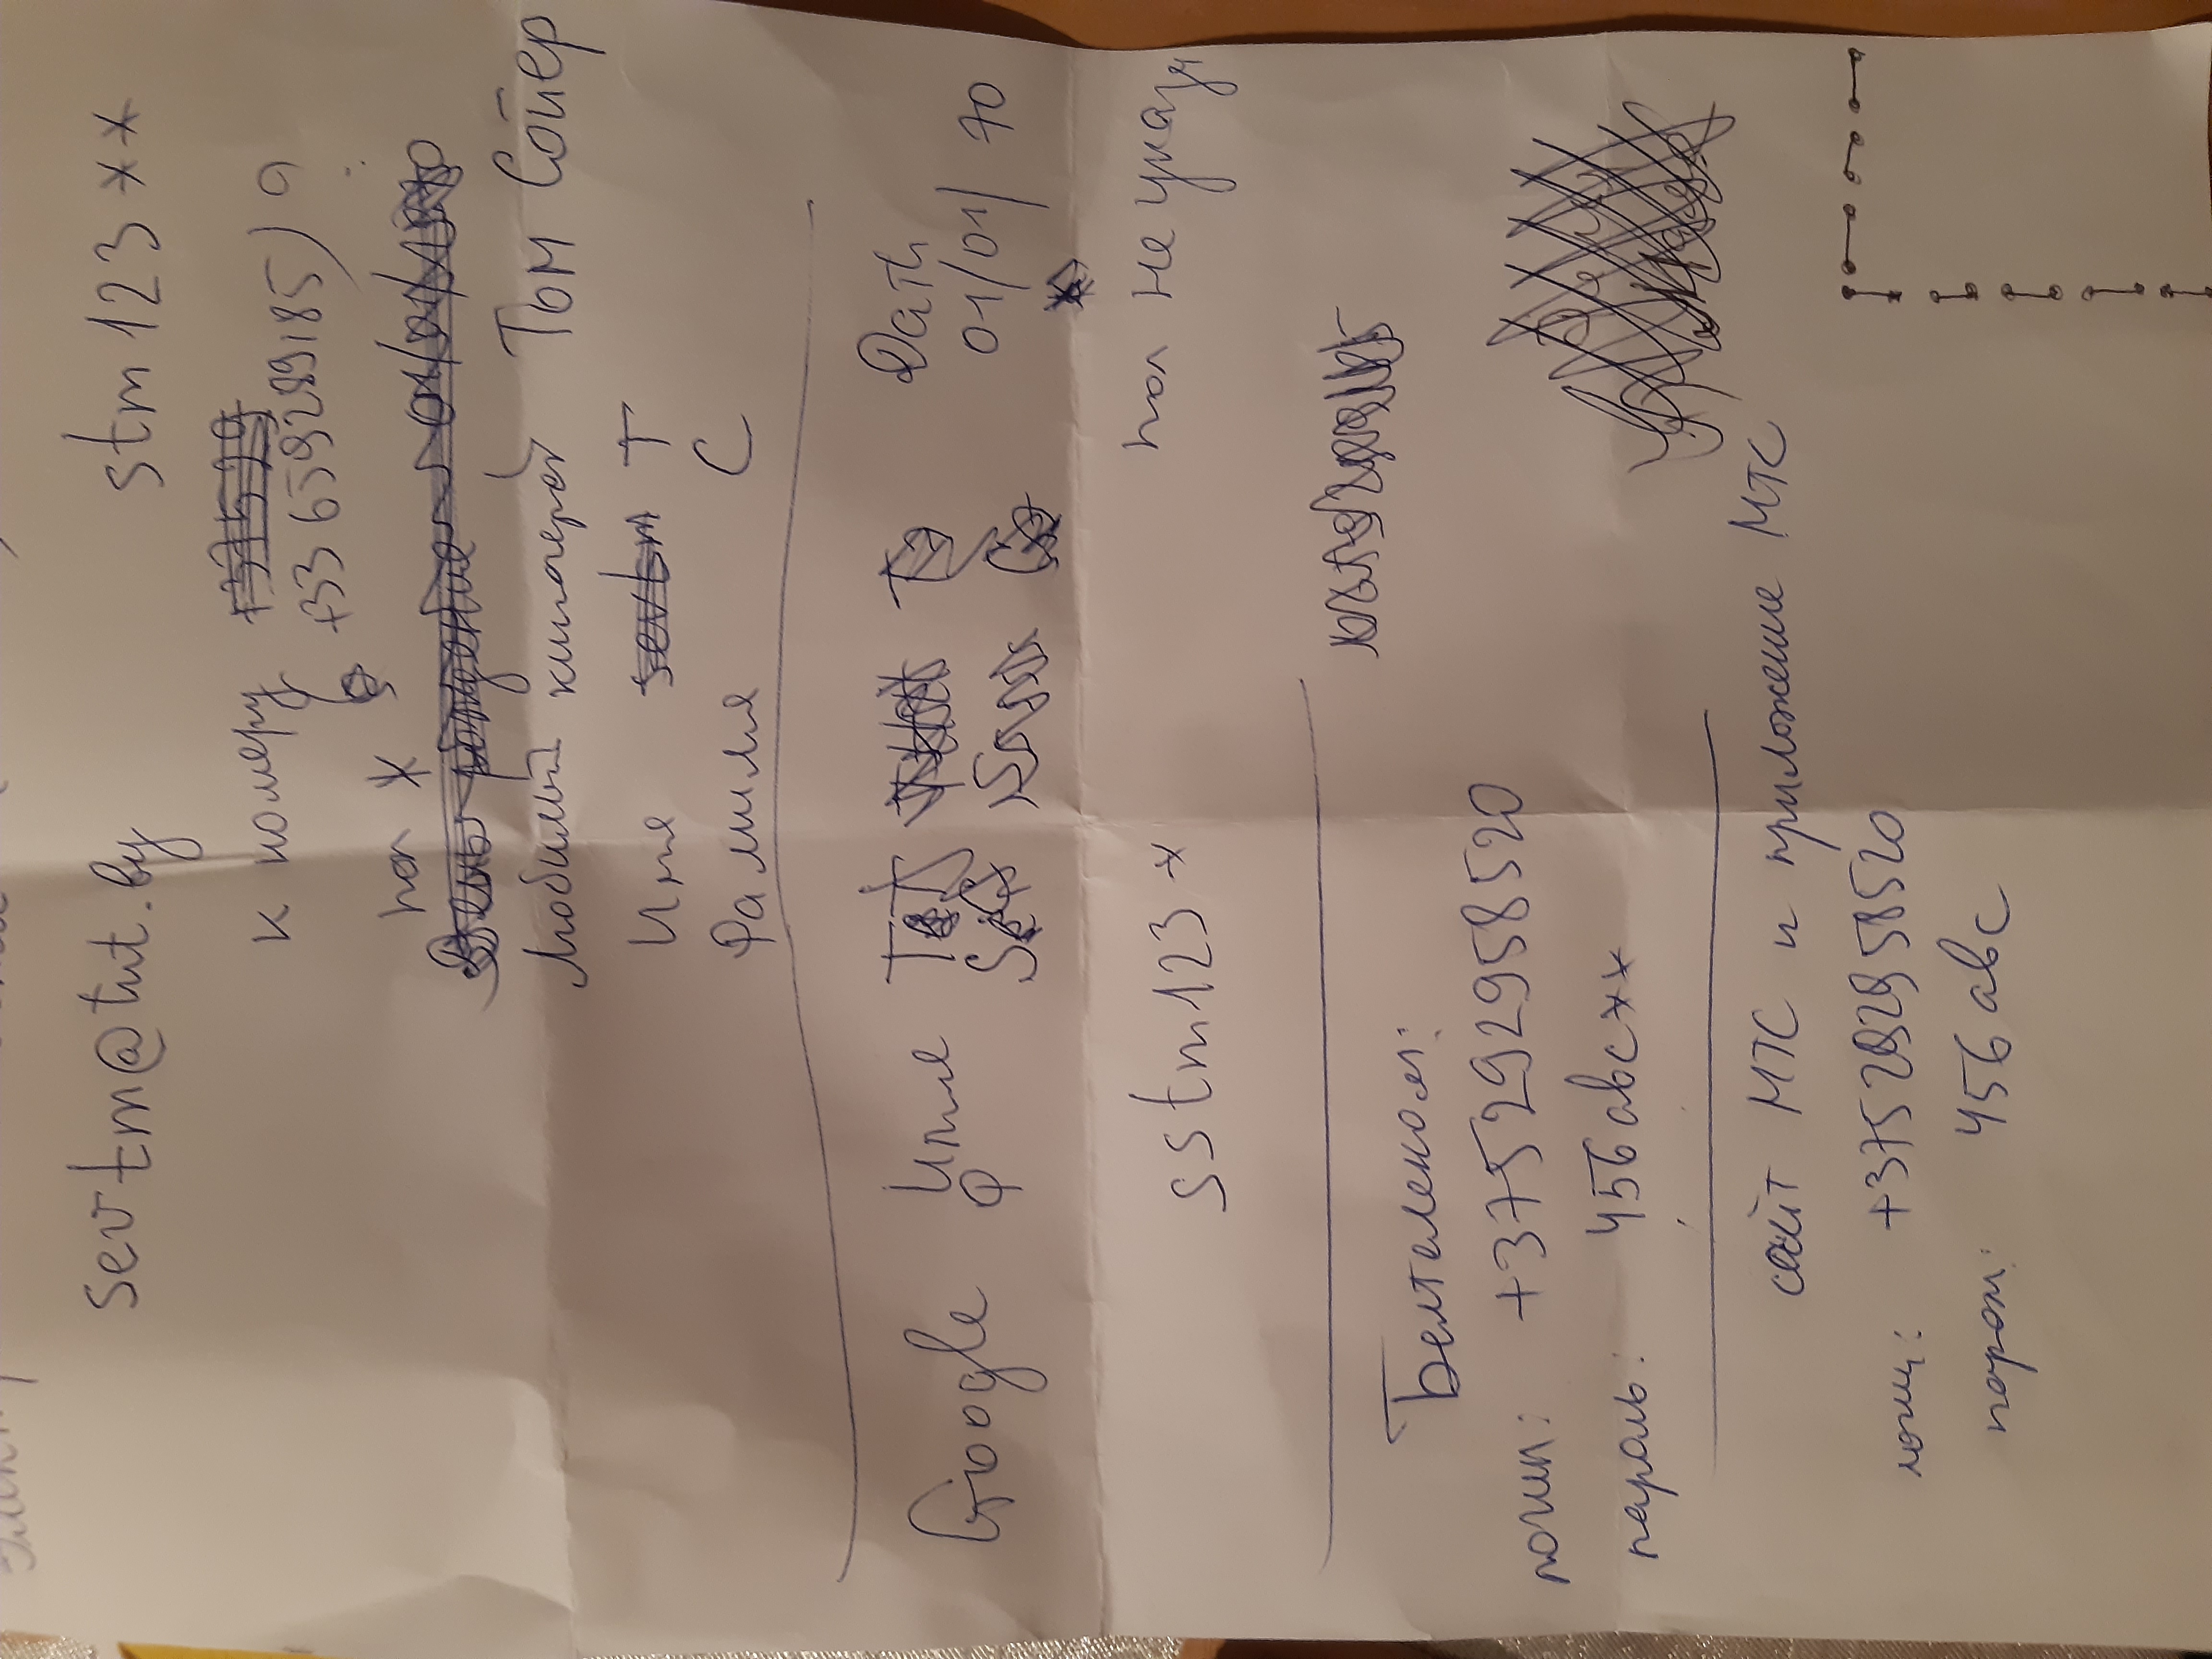 sevtm@tut.by stm123**
к номеру +37529
( +33 659289185) ?
пол *
День рождение 01/01/1970
Любимый киногерой Том Сойер
Имя sevtm Т
Фамилия С
Google Имя Дата
Ф 01/01/ 70
пол не указ
sstm123*
Белтелеком:
логин: +375292958520
пароль: 456abc**
сайт МТС и приложение МТС
логин: +375292958520
пароль: 456abc